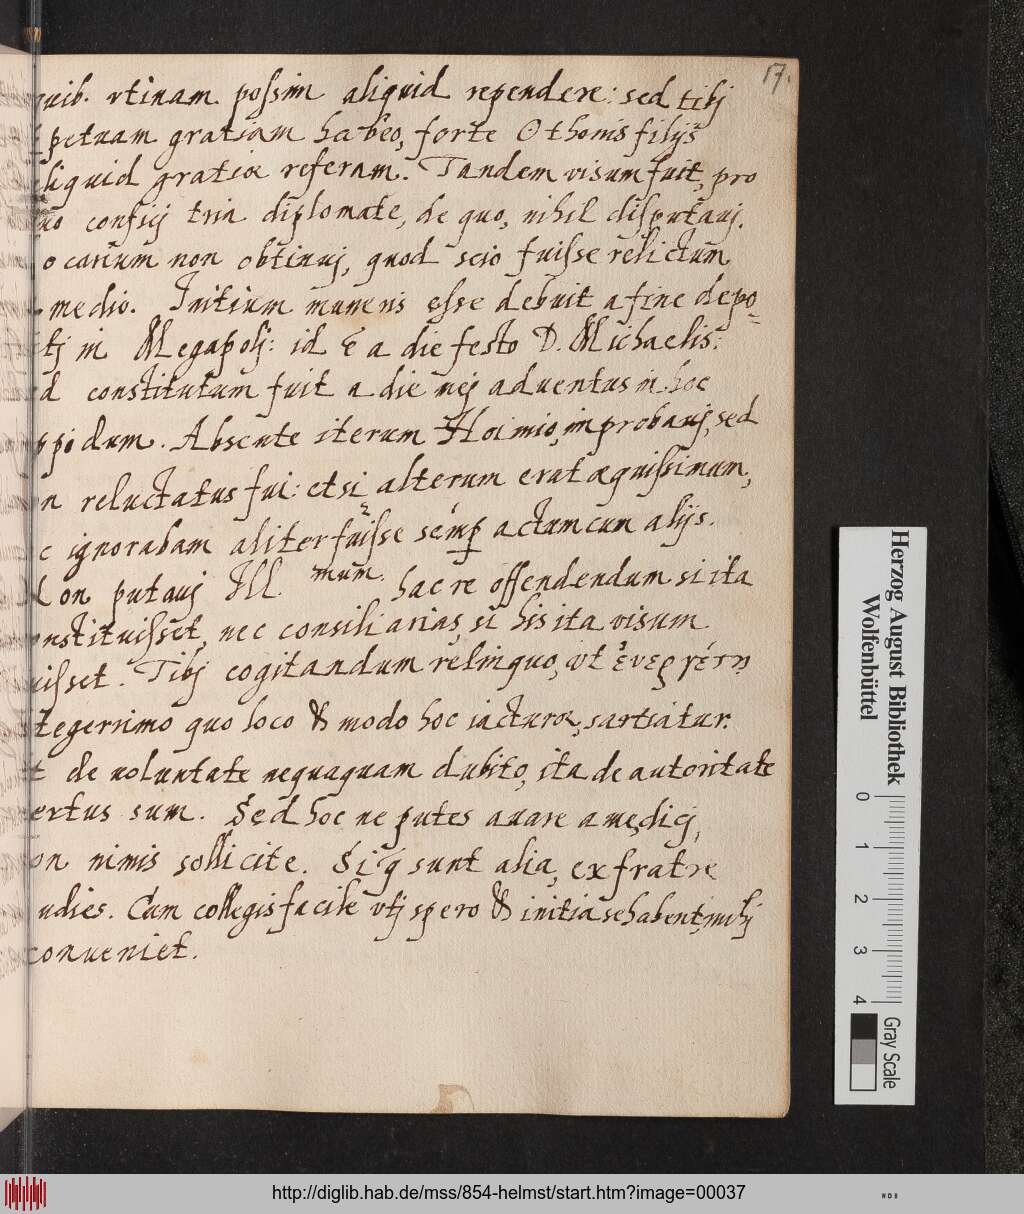 17.
quib. vtinam possim aliquid rependere: sed tibj
ꝑpetuam gratiam habeo, forte Othonis filijs
aliquid gratiæ referam. Tandem visum fuit, pro
quo confcij tria diplomate, de quo, nihil disputauj.
locarium non obtinuj, quod scio fuisse relictum
medio. Initium muneris esse debuit a fine depo=
itj in Megapolj: id ē a die festo D. Michaelis:
ed constitutum fuit a die mej aduentus in hoc
oppidum. Absente iterum Hoimio, improbauj, sed
on reluctatus fui: etsi alterum erat æquissimum,
c ignorabam aliter fuisse semꝑ actum cum alijs.
on putauj Ill mum. hac re offendendum si ita
onstituisset, nec consiliarias, si his ita visum
uisset. Tibj cogitandum relinquo, vt ἐυεργέτη
tegerrimo quo loco & modo hoc iacturæ, sartiatur.
t de voluntate nequaquam dubito, ita de autoritate
ertus sum. Sed hoc ne putes auare a me dici,
on nimis sollicite. Si q̄ sunt alia, ex fratre
udies. Cum collegis facile vtj spero & initia se habent, mihj
conueniet.
Herzog August Bibliothek
Wolfenbüttel
0 1 2 3 4
Gray Scale
http://diglib.hab.de/mss/854-helmst/start.htm?image=00037
WDB